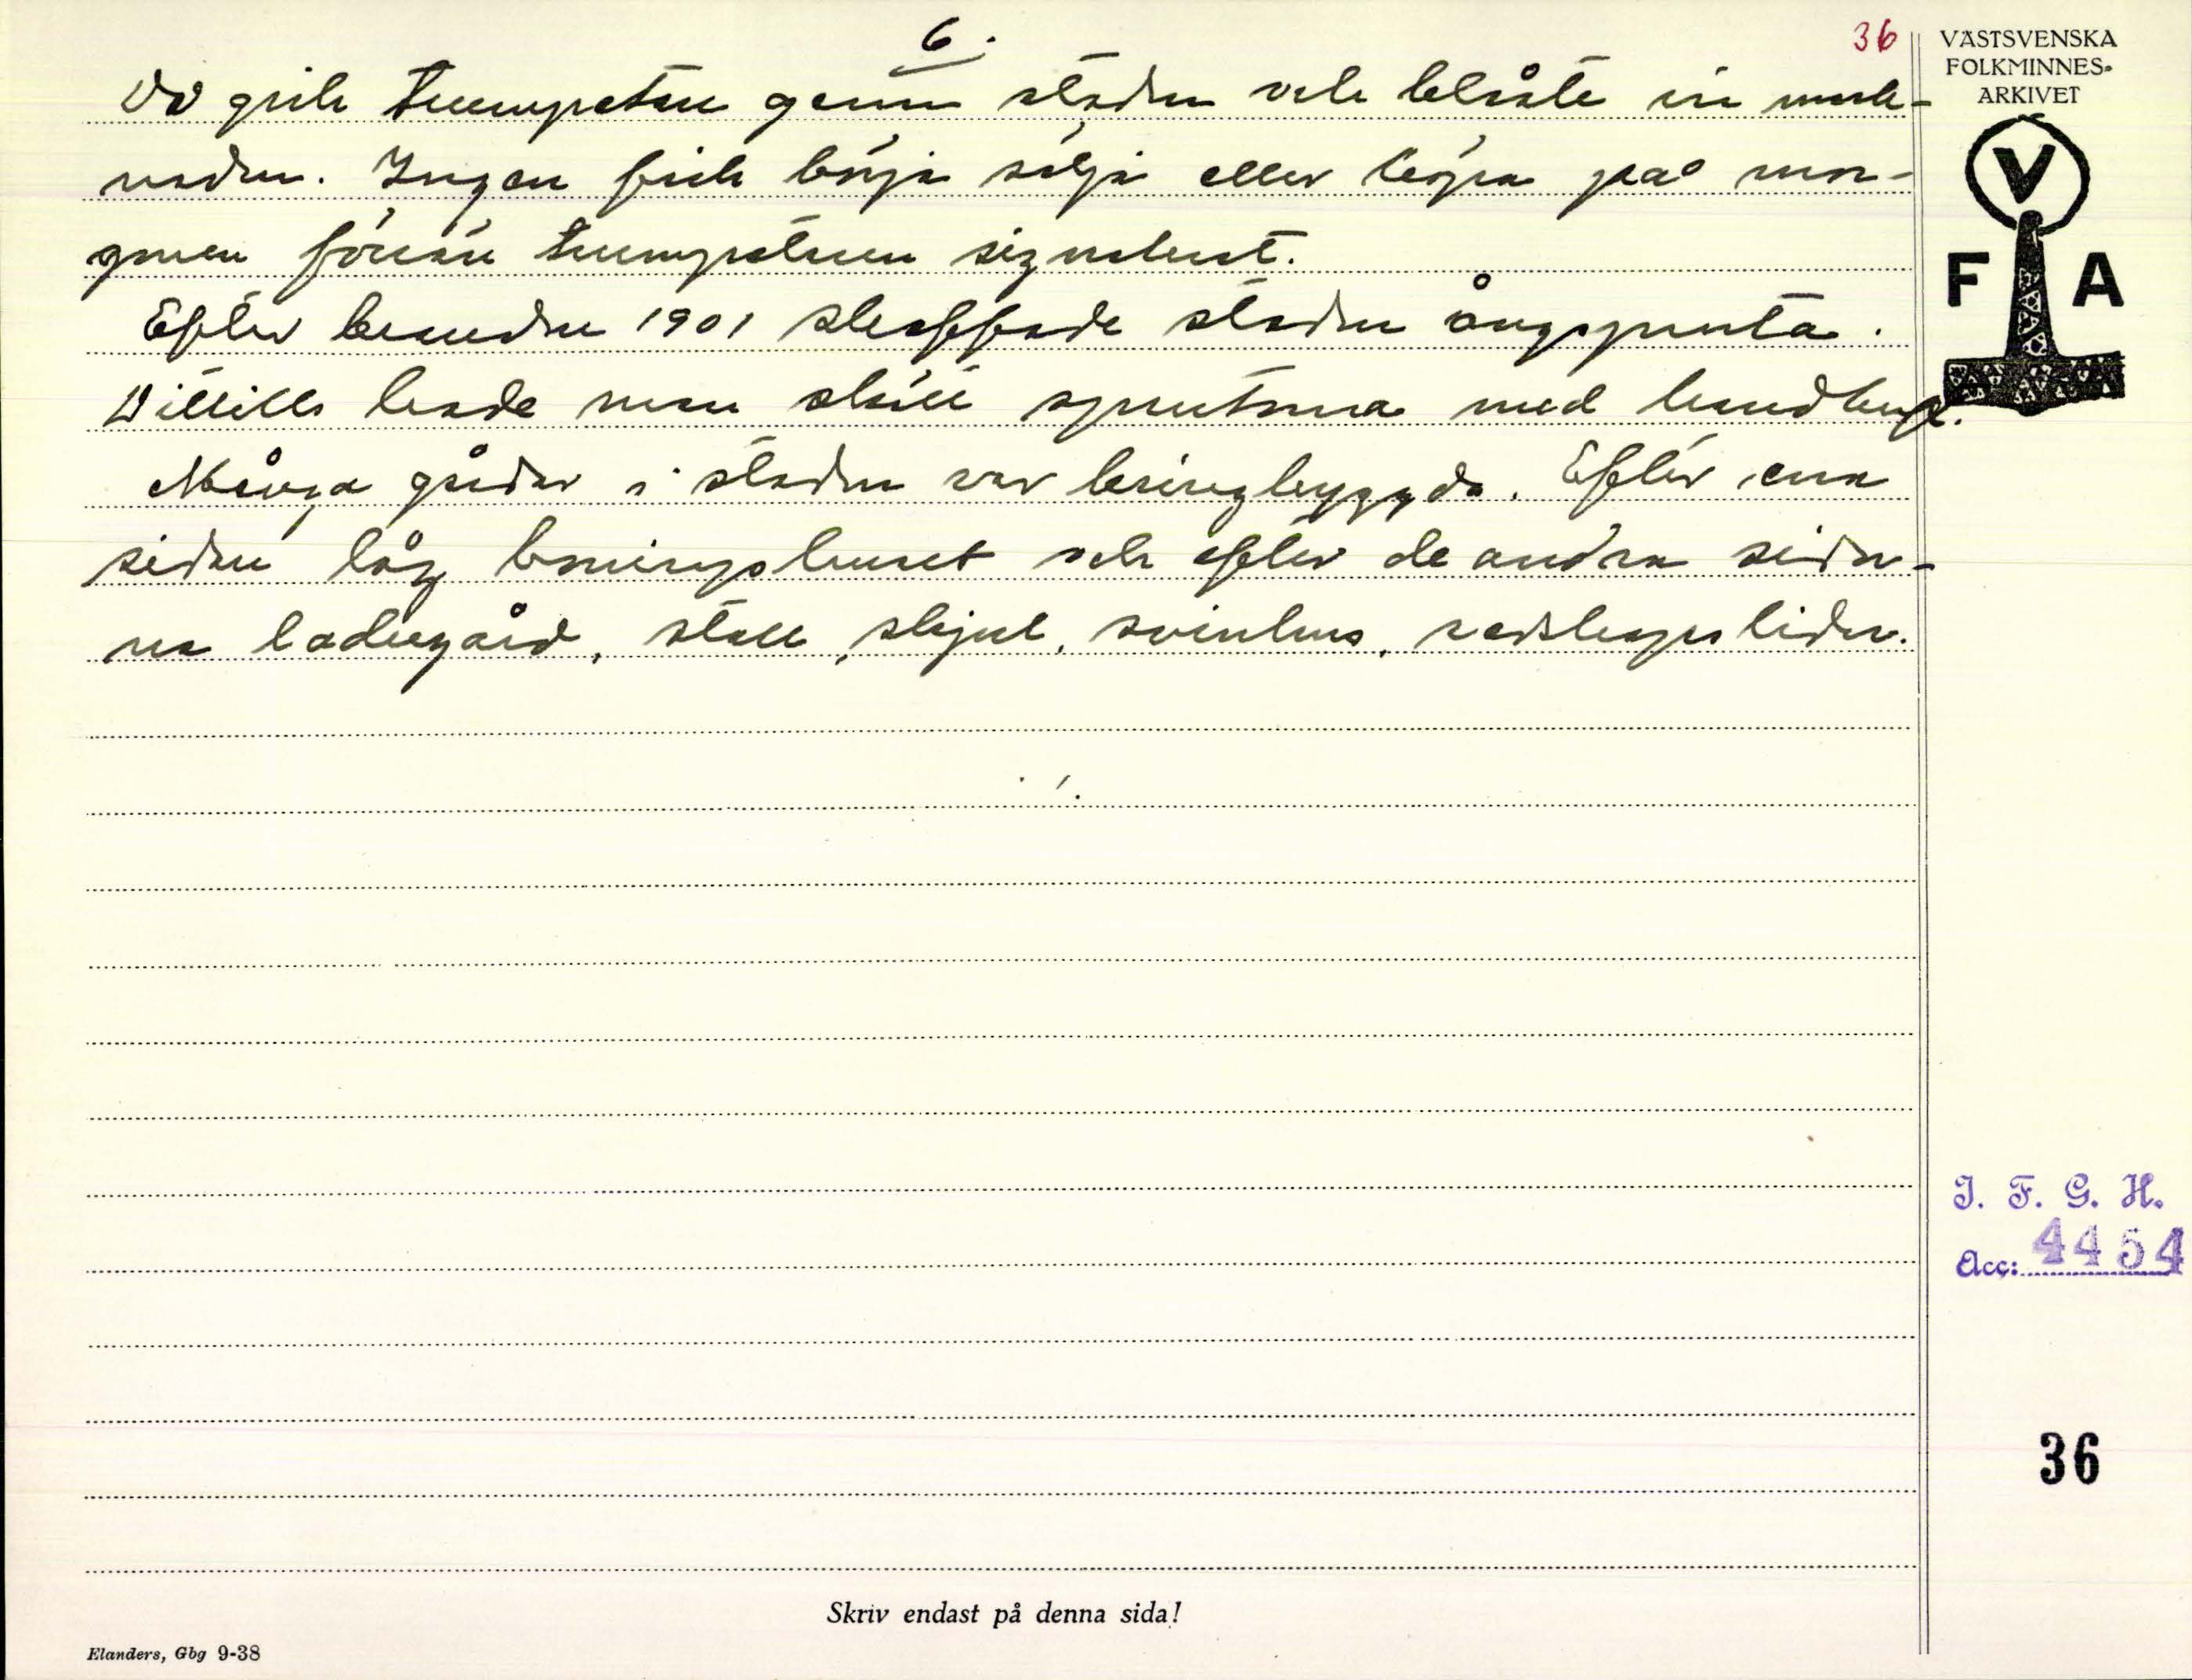 6.
36
Då gick trumpetare genom staden och blåste in mark-
naden. Ingen fick börja sälja eller köpa på mor-
gonen förrän trumpetaren signalerat.
Efter branden 1901 skaffade staden ångspruta.
Dittills hade man skött sprutorna med handkraft.
Många gårdar i staden var kringbyggda. Efter ena
sidan låg boningshuset och efter de andra sidor-
na ladugård, stall, skjul, svinhus, redskapslider.
VÄSTSVENSKA
FOLKMINNES-
ARKIVET
V
F A
I. F. G. H.
Acc: 4454
36
Skriv endast på denna sida!
Elanders, Gbg 9-38